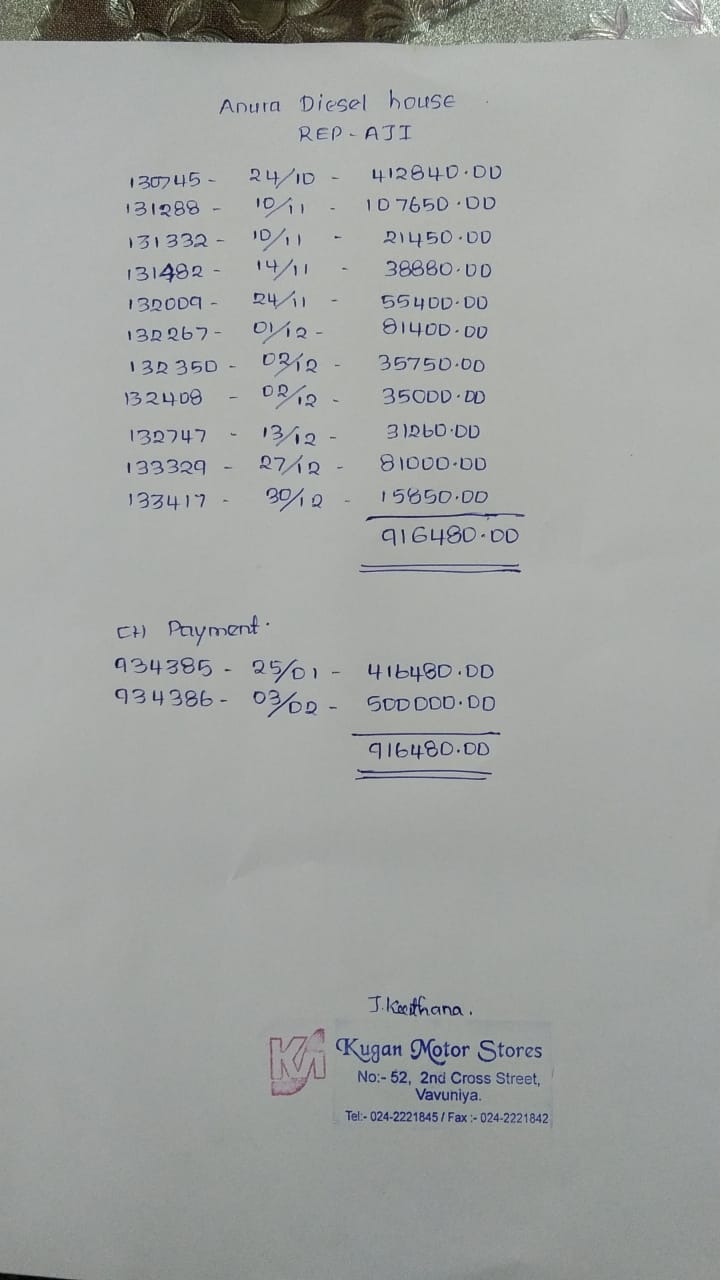 Anura Diesel house
REP - AJI
130745 - 24/10 - 412840.00
131288 - 10/11 - 107650.00
131332 - 10/11 - 21450.00
131482 - 14/11 - 38880.00
132009 - 24/11 - 55400.00
132267 - 01/12 - 81400.00
132350 - 02/12 - 35750.00
132408 - 02/12 - 35000.00
132747 - 13/12 - 31260.00
133329 - 27/12 - 81000.00
133417 - 30/12 - 15850.00
916480.00
CH Payment.
934385 - 25/01 - 416480.00
934386 - 03/02 - 500000.00
916480.00
J.Keethana.
Kugan Motor Stores
No:- 52, 2nd Cross Street,
Vavuniya.
Tel:- 024-2221845 / Fax :- 024-2221842